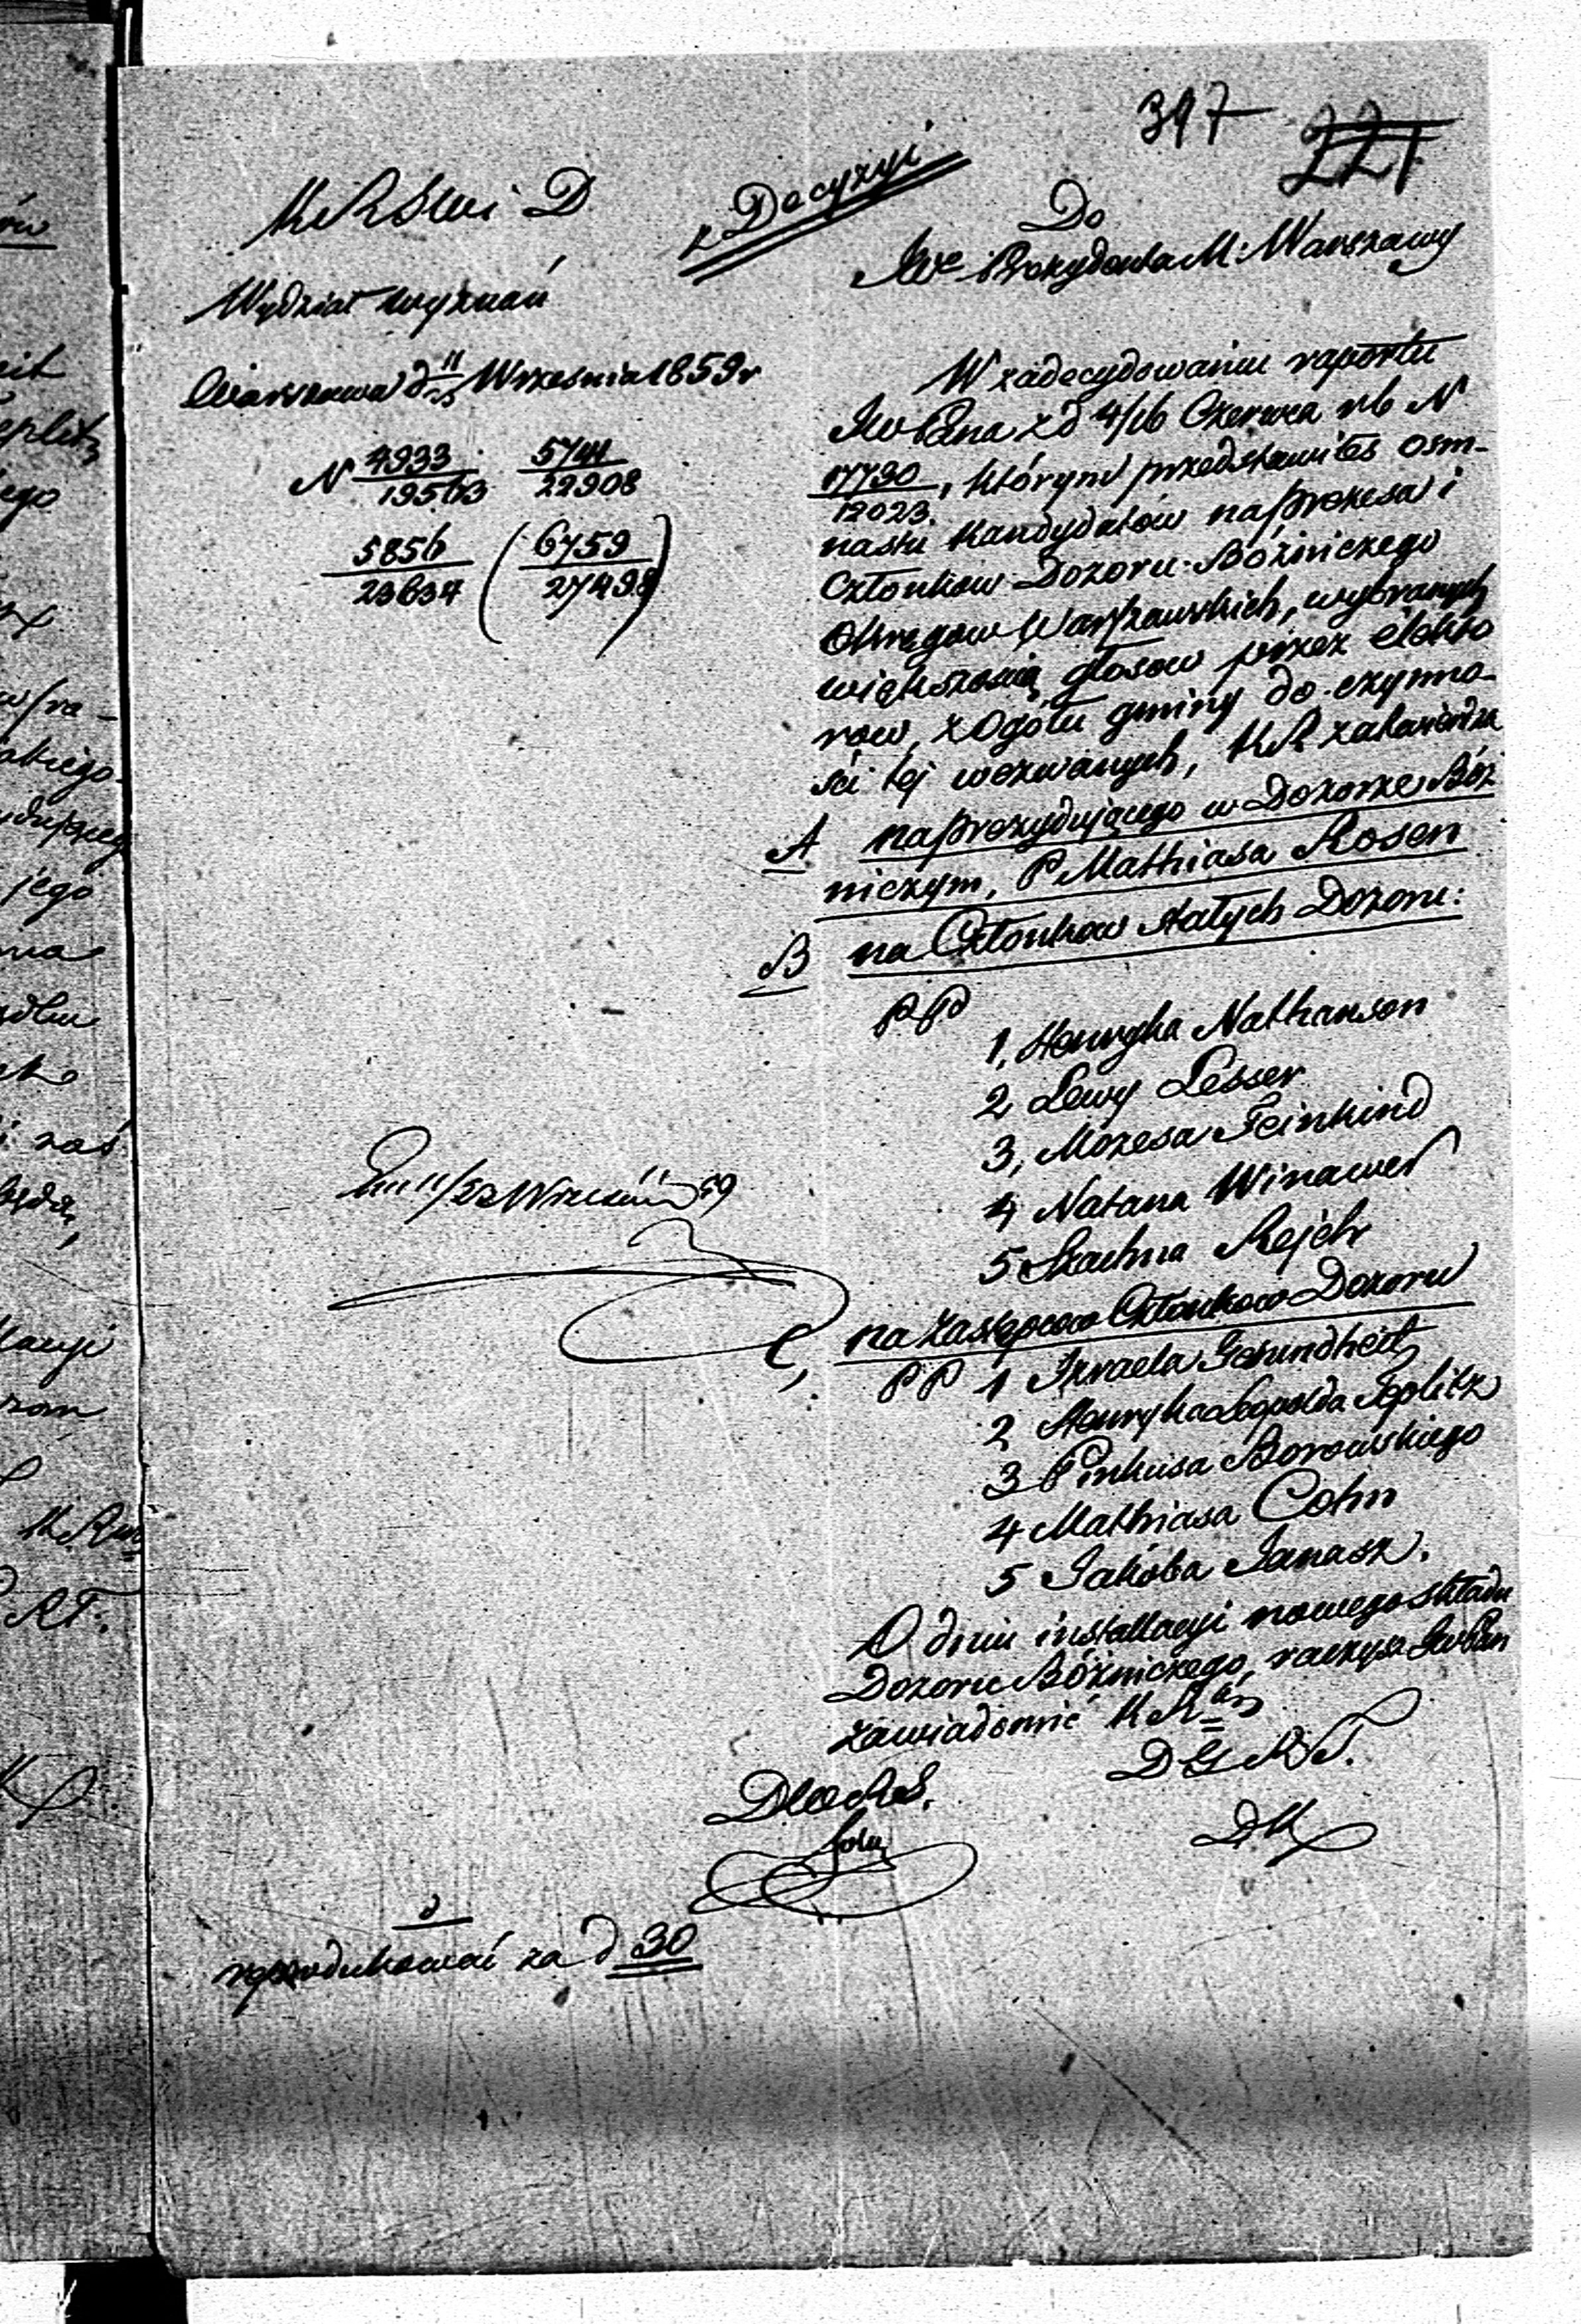 397 221
z Decyzyi
K R S W i D
Wydział wyznań
Warszawa d 11/23 Września 1859 r
N 4933/19563 5741/22908
5856/23634 (6759/27498)
Do
JWo Prezydenta M: Warszawy
W zadecydowaniu raportu
JW Pana z d 4/16 Czerwca r b N
17790/12023, którym przedstawiłeś osm-
nastu kandydatów na prezesa i
Członków Dozoru Bóźniczego
Okręgów Warszawskich, wybranych
większością głosów przez elekto
rów, z Ogółu gminy do czynno-
ści tej wezwanych, K R zatwierdza
A na prezydującego w Dozorze Bóź
niczym, P Mathiasa Rosen
B na Członków stałych Dozoru:
P P
1, Henryka Nathanson
2 Lewy Lesser
3, Mozesa Feinkind
4 Natana Winawer
5 Szachna Rejch
C, na zastępców Członków Dozoru
P P 1 Izraela Gesundheit
2 Henryka Leopolda Toeplitz
3 Pinkusa Borowskiego
4 Mathiasa Cohn
5 Jakóba Janasz.
O dniu installacyi nowego składu
Dozoru Bóźniczego, raczysz JW Pan
zawiadomić K R
D G R T.
D K
11/23 Wrześnie 59
reprodukować za d 30